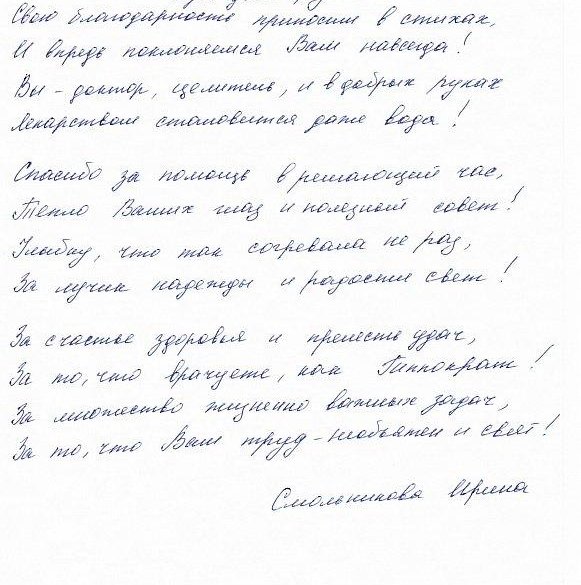 Свою благодарность приносим в стихах,
И впредь поклоняемся Вам навсегда!
Вы - доктор, целитель, и в добрых руках
Лекарством становится даже вода!
Спасибо за помощь в решающий час,
Тепло Ваших глаз и полезный совет!
Улыбку, что так согревала не раз,
За лучик надежды и радости свет!
За счастье здоровья и прелесть удач,
За то, что врачуете, как Гиппократ!
За множество жизненно важных задач,
За то, что Ваш труд - необъятен и свят!
Смольникова Ирина